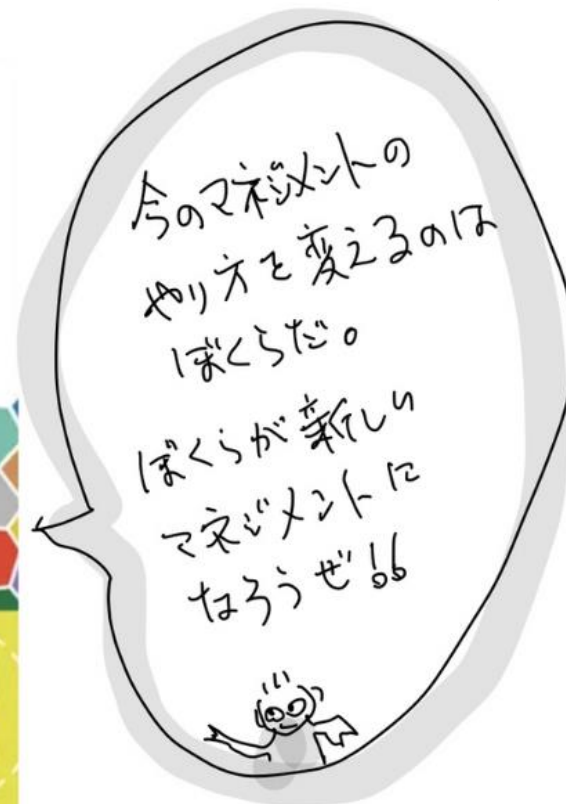 今のマネジメントの
やり方を変えるのは
ぼくらだ。
ぼくらが新しい
マネジメントに
なろうぜ!!